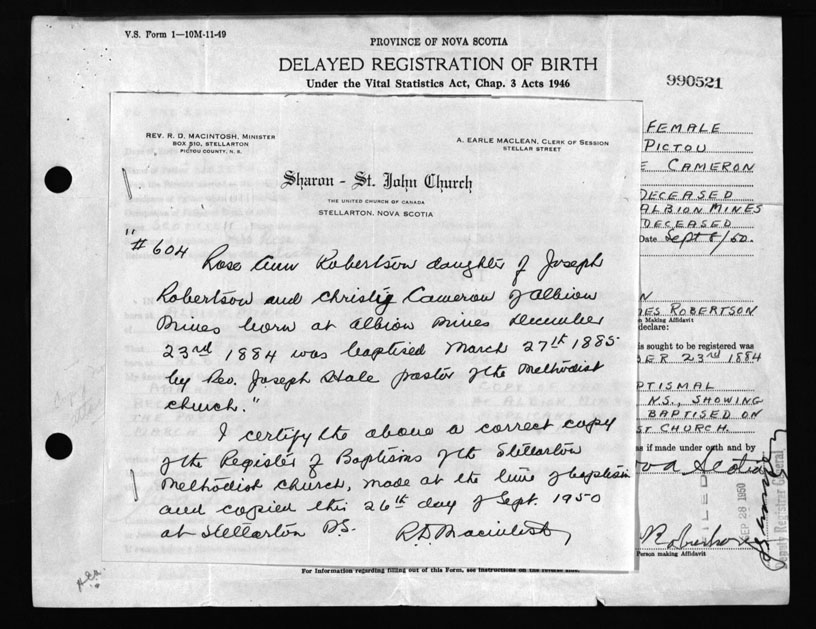 V.S. Form 1—10M-11-49
PROVINCE OF NOVA SCOTIA
DELAYED REGISTRATION OF BIRTH
Under the Vital Statistics Act, Chap. 3 Acts 1946
990521
REV. R. D. MACINTOSH, MINISTER
BOX 510, STELLARTON
PICTOU COUNTY, N. S.
A. EARLE MACLEAN, CLERK OF SESSION
STELLAR STREET
Sharon - St. John Church
THE UNITED CHURCH OF CANADA
STELLARTON, NOVA SCOTIA
"
#604 Rose Ann Robertson daughter of Joseph
Robertson and Christie Cameron of Albion
Mines born at Albion Mines December
23rd 1884 was baptised March 27th 1885
by Rev. Joseph Hale pastor of the Methodist
church."
I certify the above a correct copy
of the Register of Baptisms of the Stellarton
Methodist Church, made at the time of baptism
and copied this 26th day of Sept. 1950
at Stellarton N.S. R.D. Macintosh
FEMALE
PICTOU
E CAMERON
DECEASED
ALBION MINES
DECEASED
Date Sept 8/50.
N
ES ROBERTSON
n Making Affidavit
declare:
is sought to be registered was
BER 23rd 1884
PTISMAL
NS., SHOWING
BAPTISED ON
ST CHURCH.
as if made under oath and by
ova Scotia
FILED
SEP 28 1950
Deputy Registrar General
Robertson
Person making Affidavit
For Information regarding filling out of this Form, see instructions on the reverse side.